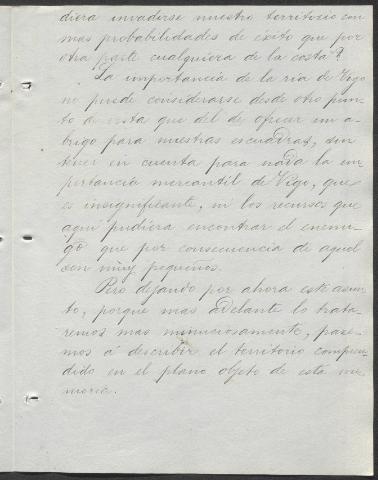 diera invadirse nuestro territorio con
mas probabilidades de éxito que por
otra parte cualquiera de la costa?
La importancia de la ria de Vigo
no puede considerarse desde otro pun-
to de vista que del de ofrecer un a-
brigo para nuestras escuadras, sin
tener en cuenta para nada la im-
portancia mercantil de Vigo, que
es insignificante, ni los recursos que
aquí pudiera encontrar el enemi-
go que por consecuencia de aquel
son muy pequeños.
Pero dejando por ahora este asun-
to, porque mas adelante lo trata-
remos mas minuciosamente, pase-
mos á describir el territorio compren-
dido en el plano objeto de esta me-
moria.